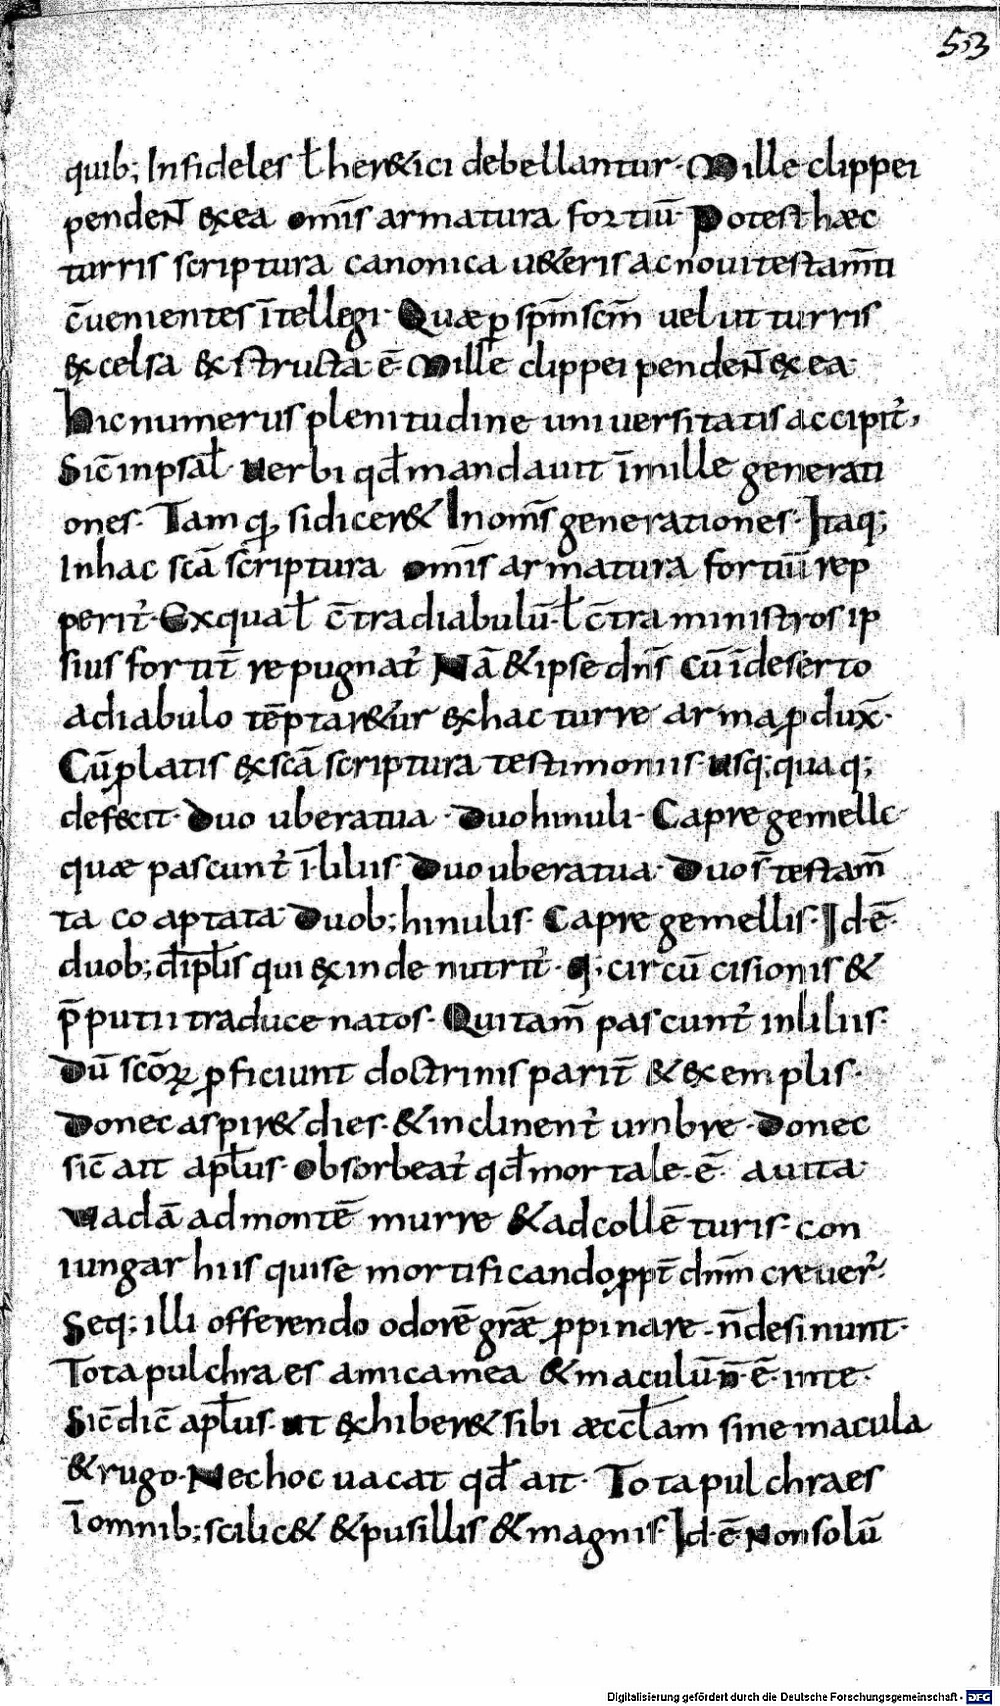 53
quib; Infideles ł her&ici debellantur· Mille clippei
pendeNT exea om̅is armatura fortiu̅· Potest haec
turris scriptura canonica u&eris ac noui testam̅ti
c̅uenientes i̅tellegi· Quae ꝑ sp̅m sc̅m uel ut turris
excelsa & structa e̅· Mille clippei pendeNT exea·
hic numerus plenitudine uniuersitatis accipit᷑,
Sic̅ in psal̅· Uerbi qđ mandauit i̅ mille generati
ones· Tamq̅ si dicer& In om̅s generationes· Itaq;
In hac sca̅ scriptura om̅is armatura fortiu̅ rep
perit᷑· Ex qua ł c̅tra diabulu̅· ł c̅tra ministros ip
sius fortit̅ repugnat᷑ Na̅ & ipse dn̅s cu̅ i̅ deserto
a diabulo te̅ptar&ur ex hac turre arma ꝓdux̅·
Cu̅ ꝓlatis ex sca̅ scriptura testimoniis· usq; quaq;
defecit· Duo ubera tua· Duo hinuli· Capre gemelle·
quae pascunt᷑ i̅ liliis· Duo ubera tua· Duo s̅ testam̅
ta coaptata Duob; hinulis· Capre gemellis· Id·e̅·
duob; disciꝑlis qui exinde nutrit᷑· q; circu̅cisionis &
p̅putii traduce natos· Qui tam̅ pascunt᷑ in liliis·
Du̅ sco̅ꝝ ꝓficiunt doctrinis parit̅ & exemplis·
Donec aspir& dies· & inclinent᷑ umbre· Donec
sic̅ ait apłus· Obsorbeat᷑ qđ mortale·e̅· a uita·
Uada̅ ad monte̅ murre & ad colle̅ turis· con
iungar hiis qui se mortificando ꝓpt̅ dn̅m creuer᷑·
Seq; illi offerendo odore̅ grae̅ ꝓpinare· n̅ desinunt·
Tota pulchra es amica mea & maculu̅ n̅·e̅· in te·
Sic̅ dic̅ apłus· ut exhiber& sibi aeccłam sine macula
& rugo· Nec hoc uacat qđ ait· Tota pulchra es
I̅ omnib; scilic& & pusillis & magnis· Id·e̅· Non solu̅
Digitalisierung gefördert durch die Deutsche Forschungsgemeinschaft - DFG